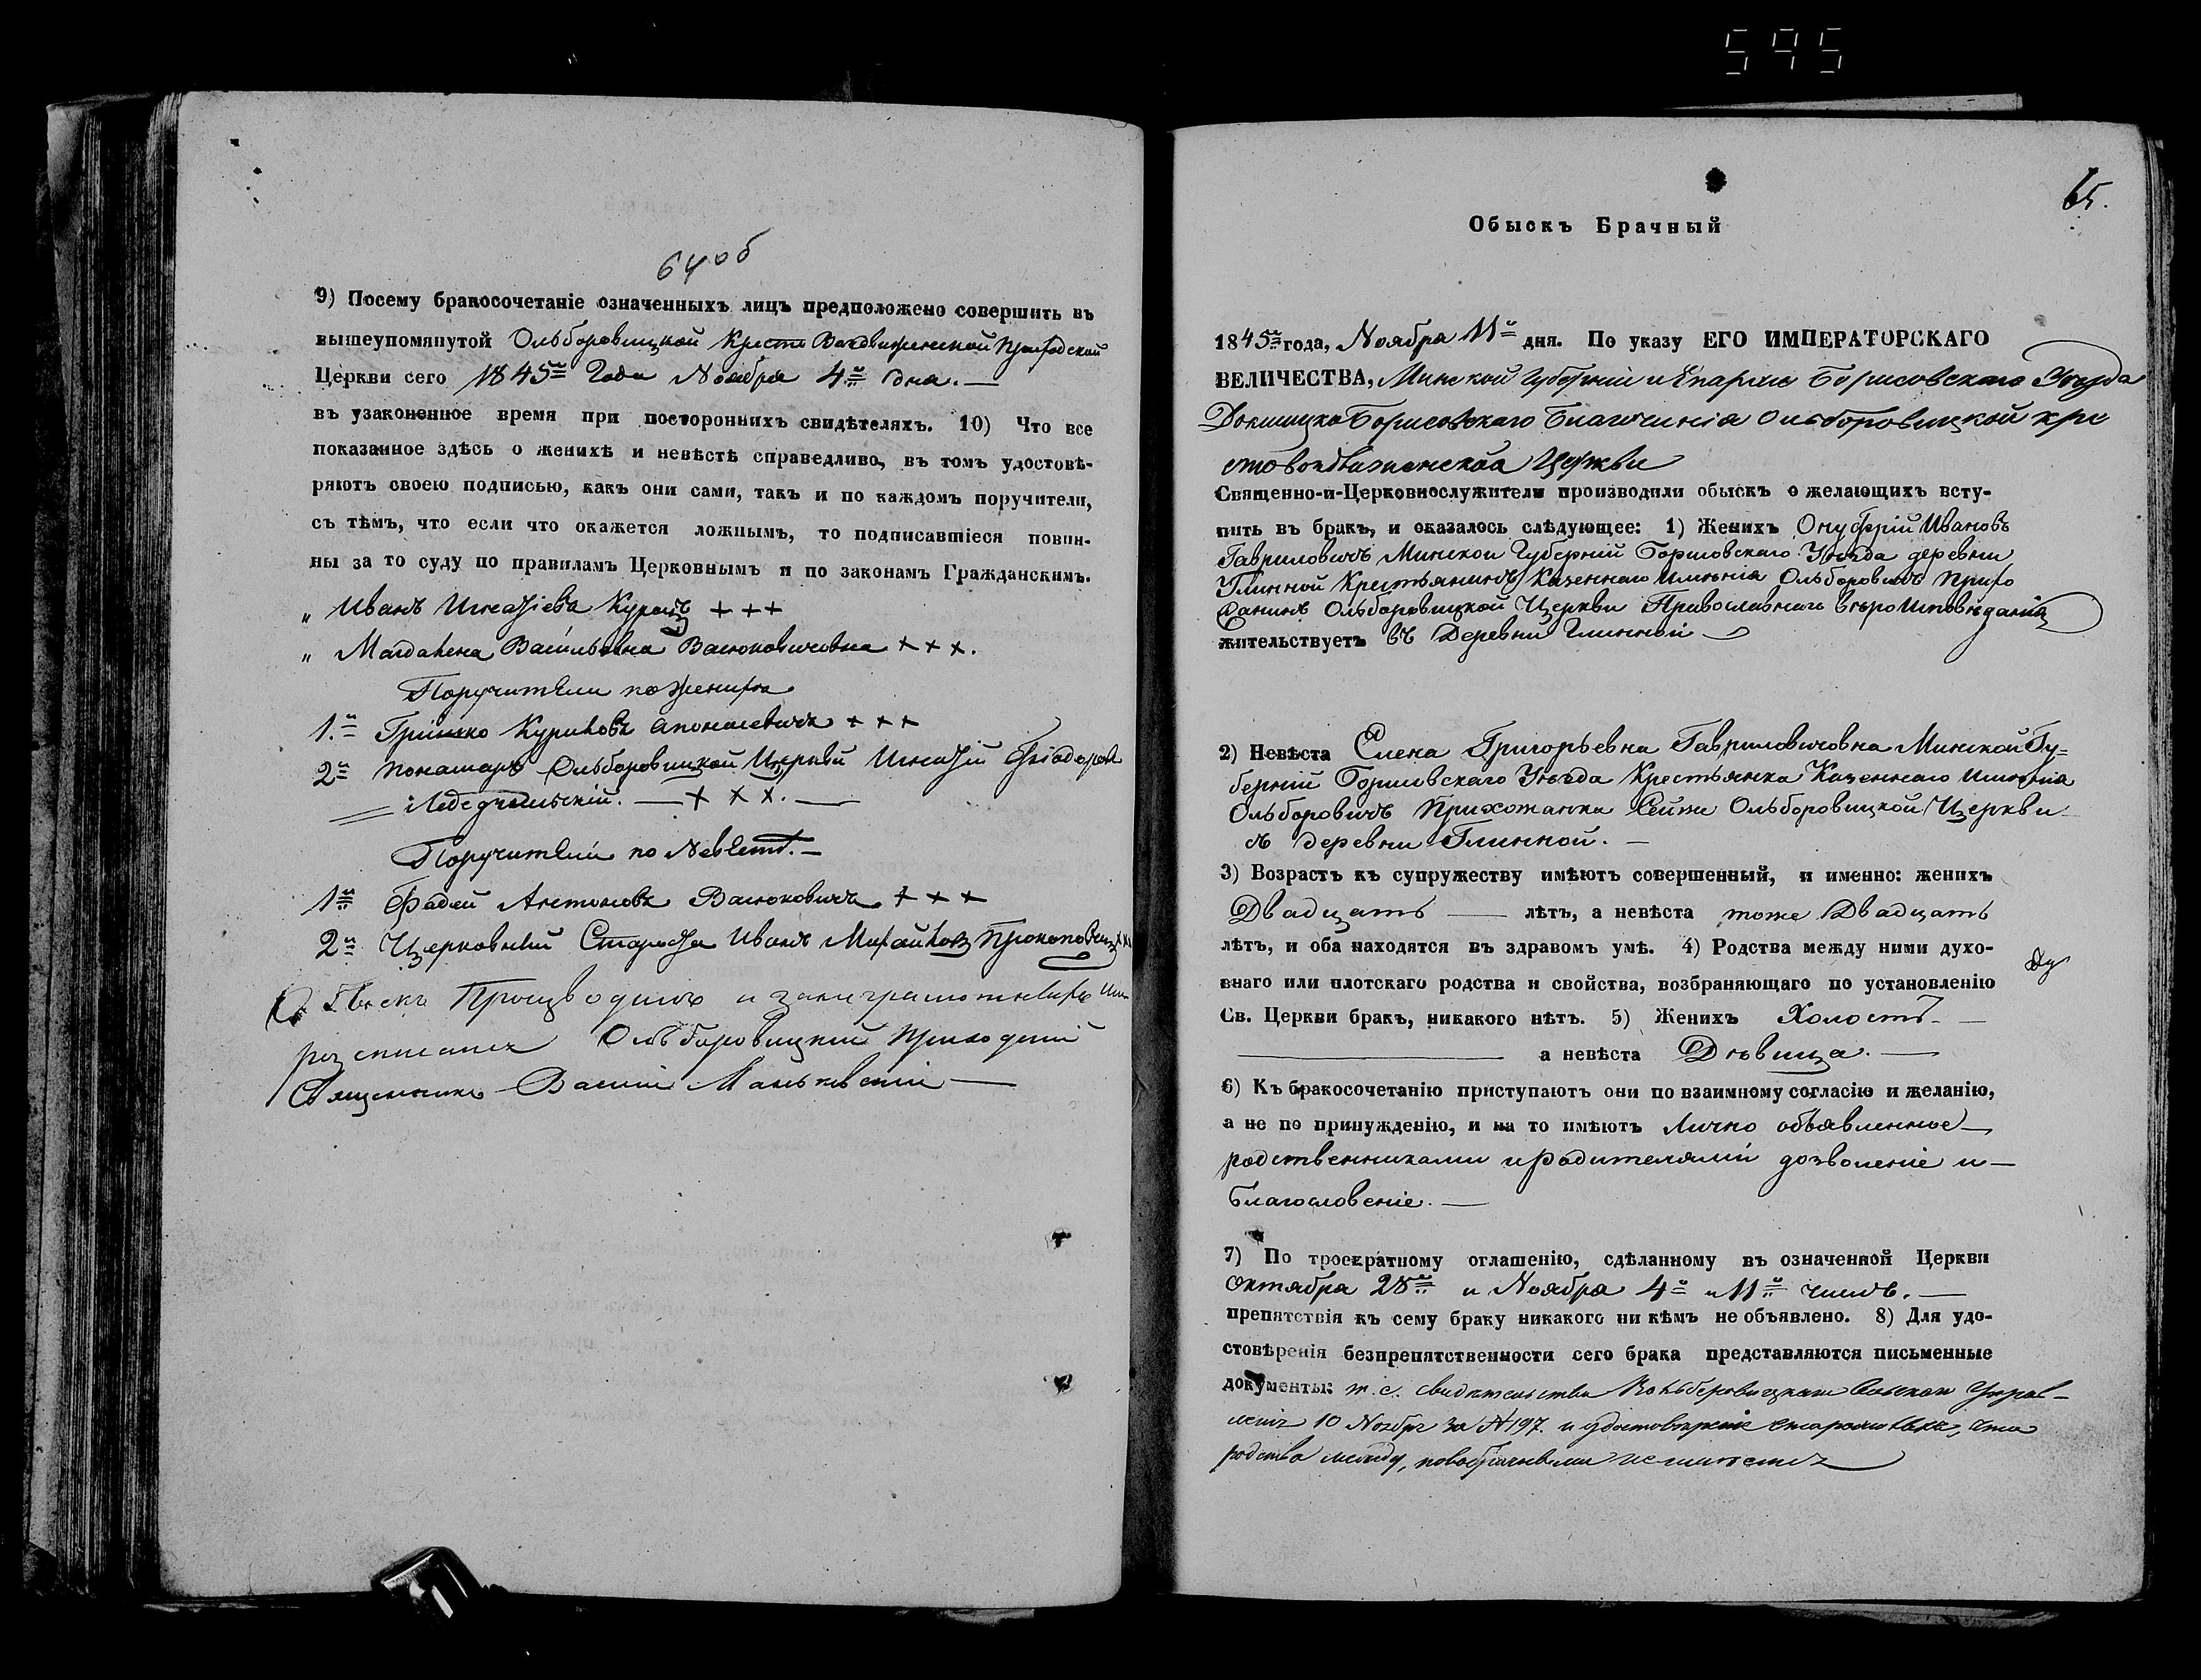 595
64 об
9) Посему бракосочетаніе означенныхъ лицъ предположено совершить въ
вышеупомянутой Ольборовицкой Кресто Воздвиженской Приходской
Церкви сего 1845го Года Ноября 4го дня. —
въ узаконенное время при постороннихъ свидѣтеляхъ. 10) Что все
показанное здѣсь о женихѣ и невѣстѣ справедливо, въ томъ удостовѣ-
ряютъ своею подписью, какъ они сами, такъ и по каждомъ поручители,
съ тѣмъ, что если что окажется ложнымъ, то подписавшіеся повин-
ны за то суду по правиламъ Церковнымъ и по законамъ Гражданскимъ.
" Иванъ +++
" Магдалена Васильевна Васюковичовна +++.
Поручители по женихѣ
1й +++
2й понамарь Ольборовицкой Церкви
+++. —
Поручители по Невѣст. —
1й Фадей Антоновъ Васюковичъ +++
2й Церковный Староста Иванъ Михайловъ Прокоповичъ
Обыскъ Производилъ и
росписался Ольборовицкий Приходский
Священникъ —
65.
Обыскъ Брачный
1845го года, Ноября 11го дня. По указу ЕГО ИМПЕРАТОРСКАГО
ВЕЛИЧЕСТВА, Минской Губерніи и Епархіи Борисовскаго Уѣзда
Докшицко Борисовскаго Благочинія Ольборовицкой кре
стовоздвиженской Церкви
Священно-и-Церковнослужители производили обыскъ о желающихъ всту-
пить въ бракъ, и оказалось слѣдующее: 1) Женихъ Онуферій Ивановъ
Гавриловичъ Минской Губерній Борисовскаго Уѣзда деревни
Глинной Крестьянинъ Казеннаго Имѣнія Ольборовичъ Прихо
жанинъ Ольборовицкой Церкви Православнаго вѣроисповѣданія
жительствуетъ въ Деревни Глинной
2) Невѣста Елена Григорьевна Гавриловичовна Минской Гу=
берній Борисовскаго Уѣзда Крестьянка Казеннаго Имѣнія
Ольборовичъ Прихожанка Ольборовицкой Церкви
деревни Глинной. —
3) Возрастъ къ супружеству имѣютъ совершенный, и именно: женихъ
Двадцать — лѣтъ, а невѣста тоже Двадцать
лѣтъ, и оба находятся въ здравомъ умѣ. 4) Родства между ними духо-
внаго или плотскаго родства и свойства, возбраняющаго по установленію
Св. Церкви бракъ, никакого нѣтъ. 5) Женихъ Холостъ. —
— а невѣста Дѣвица. —
6) Къ бракосочетанію приступаютъ они по взаимному согласію и желанію,
а не по принужденію, и на то имѣютъ Лично объявленное —
родственниками и родителями дозволеніе и —
благословеніе. —
7) По троекратному оглашенію, сдѣланному въ означенной Церкви
октября 28го и Ноября 4го и 11го числъ. —
препятствія къ сему браку никакого ни кѣмъ не объявлено. 8) Для удо-
стовѣренія безпрепятственности сего брака представляются письменные
документы: т. е. свидетельство Управ-
леніе 10 Ноября за №197. и удостовѣреніе что
родства между, новобрачными